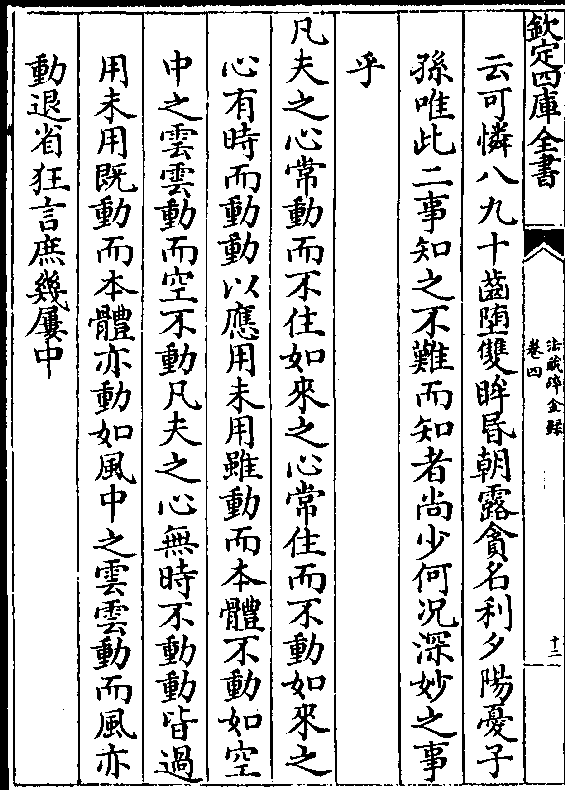 欽定四庫全書
法藏碎金録
卷四
十二
云可憐八九十齒墮雙眸昏朝露貪名利夕陽憂子
孫唯此二事知之不難而知者尚少何况深妙之事
乎
凡夫之心常動而不住如來之心常住而不動如來之
心有時而動動以應用未用雖動而本體不動如空
中之雲雲動而空不動凡夫之心無時不動動皆過
用未用既動而本體亦動如風中之雲雲動而風亦
動退省狂言庶幾屢中